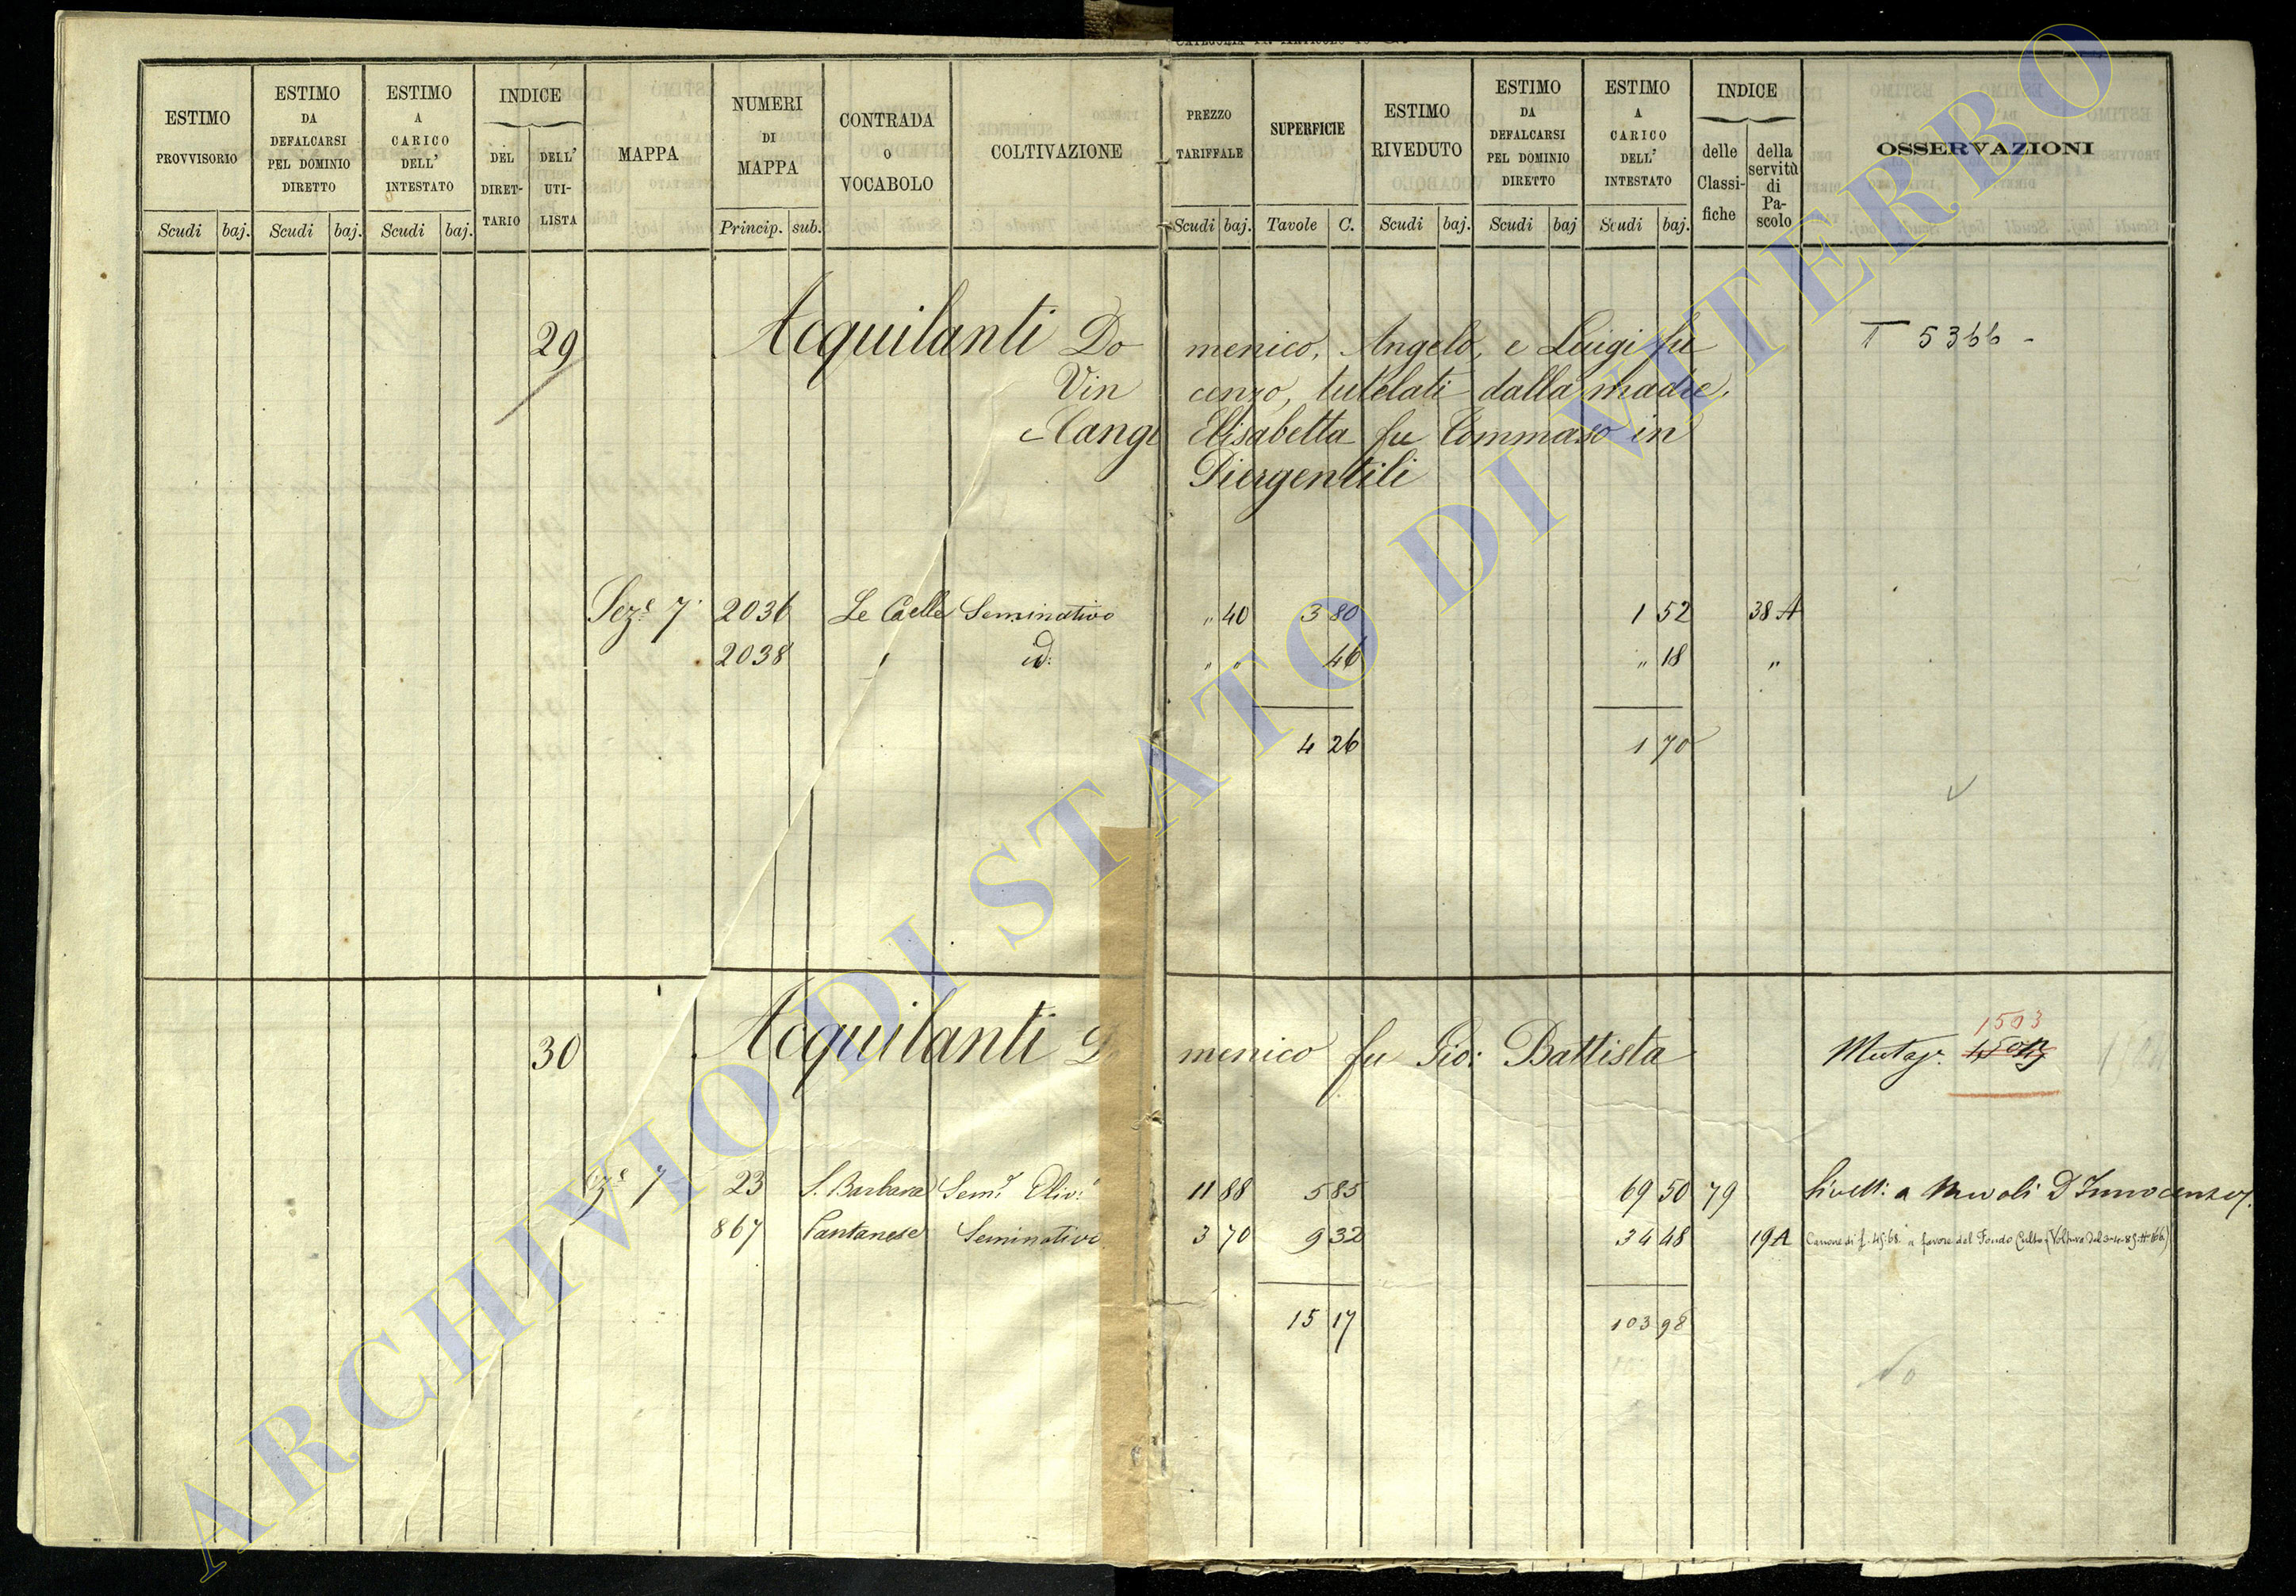 ESTIMO PROVVISORIO Scudi baj.
ESTIMO DA DEFALCARSI PEL DOMINIO DIRETTO Scudi baj.
ESTIMO A CARICO DELL' INTESTATO Scudi baj.
INDICE DEL DIRET-TARIO DELL' UTI-LISTA
MAPPA
NUMERI DI MAPPA Princip. sub.
CONTRADA O VOCABOLO
COLTIVAZIONE
PREZZO TARIFFALE Scudi baj.
SUPERFICIE Tavole C.
ESTIMO RIVEDUTO Scudi baj.
ESTIMO DA DEFALCARSI PEL DOMINIO DIRETTO Scudi baj
ESTIMO A CARICO DELL' INTESTATO Scudi baj.
INDICE delle Classi-fiche della servitù di Pa-scolo
OSSERVAZIONI
29 Acquilanti Do menico, Angelo, e Luigi fu T 5366 -
Vin cenzo, tutelati dalla madre
Elisabetta fu Tommaso in
Piergentili
Sez.e 7. 2036 Le Caelle Seminativo " 40 3 80 1 52 38 A
2038 id: " " 46 " 18 "
4 26 1 70
30 Acquilanti Do menico fu Gio: Battista Mutaz. 1503
Sez.e 7 23 S. Barbara Sem.o Oliv.o 11 88 5 85 69 50 79 Livell: a D'Innocenzo
867 Pantanese Seminativo 3 70 9 32 34 48 19 A Canone di £. 45.68 a favore del Fondo Culto
15 17 103 98
ARCHIVIO DI STATO DI VITERBO